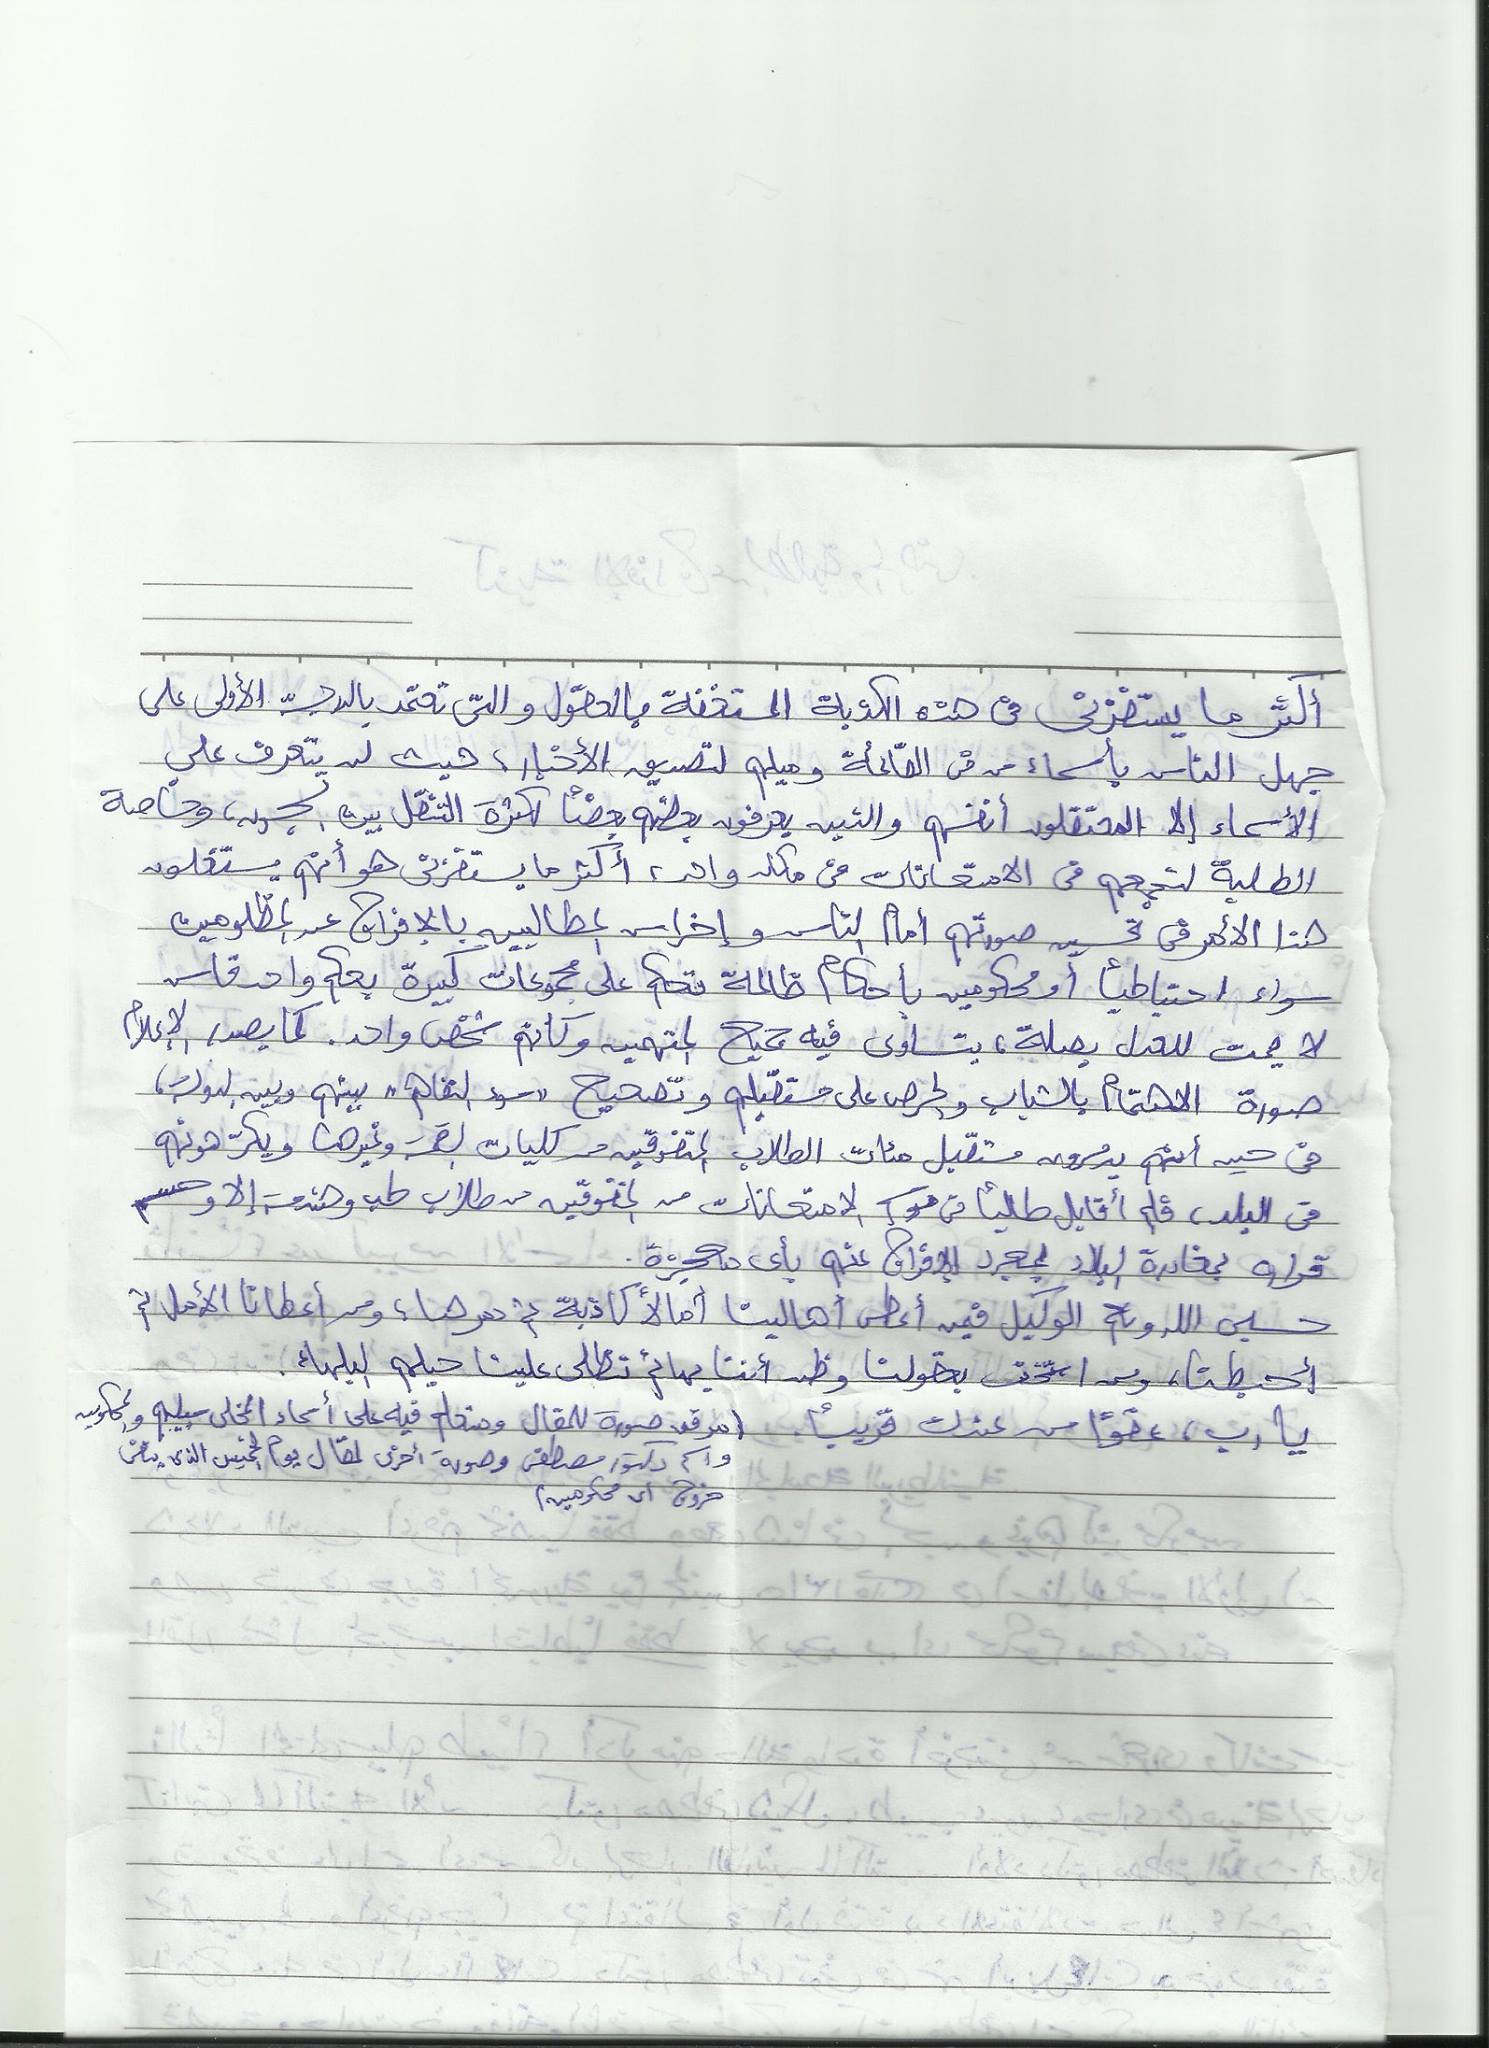 أكثر ما يستفزني في هذه الكذبة المستخفة بالعقول والتي تعتمد بالدرجة الأولى على
جهل الناس بأسماء من في القائمة وميلهم لتصديق الأخبار، حيث لن يتعرف على
الأسماء إلا المعتقلون أنفسهم والذين يعرفون بعضهم بعضًا لكثرة التنقل بين السجون، وخاصة
الطلبة لتجمعهم في الامتحانات في مكان واحد، أكثر ما يستفزني هو أنهم يستغلون
هذا الأمر في تحسين صورتهم أمام الناس وإخراس المطالبين بالإفراج عن المظلومين
سواء احتياطيًا أو محكومين بأحكام ظالمة تحكم على مجموعات كبيرة بحكم واحد قاس
لا يمت للعدل بصلة، يتساوى فيه جميع المتهمين وكأنهم شخص واحد. كما يصدر الإعلام
صورة الاهتمام بالشباب والحرص على مستقبلهم وتصحيح "سوء التفاهم" بينهم وبين الدولة،
في حين أنهم يدمرون مستقبل مئات الطلاب المتفوقين من كليات القمة وغيرها ويكرهونهم
في البلد، فلم أقابل طالبًا في الامتحانات من المتفوقين من طلاب طب وهندسة إلا وحسم
قراره بمغادرة البلاد بمجرد الإفراج عنه بأي معجزة.
حسبي الله ونعم الوكيل فيمن أعطى أهالينا آمالًا كاذبة ثم دمرها، ومن أعطانا الأمل ثم
أحبطنا، ومن استخف بعقولنا وظن أننا بهائم تنطلي علينا حيلهم البلهاء.
يا رب، عفوًا من عندك قريبًا.
(مرفق صورة للمقال ومتعلم فيه على أسماء المخلى سبيلهم والمحكومين
واسم دكتور مصطفى وصورة أخرى لمقال يوم الخميس الذي ينفي
خروج أي محكومين)